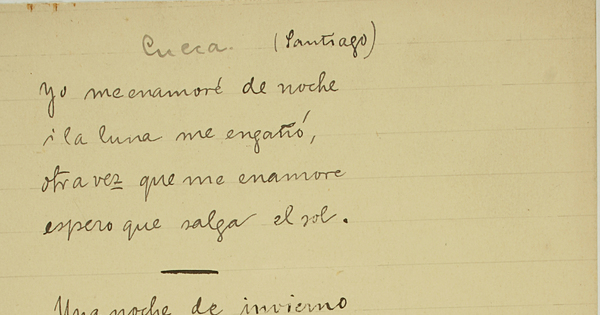 Cueca. (Santiago)
Yo me enamoré de noche
i la luna me engañó,
otra vez que me enamore
espero que salga el sol.
Una noche de invierno